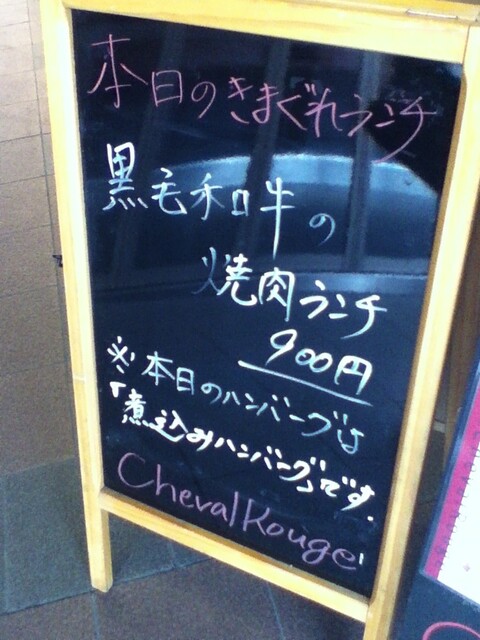 本日のきまぐれランチ
黒毛和牛の
焼肉ランチ
900円
※本日のハンバーグは
「煮込みハンバーグ」です.
Cheval Rouge